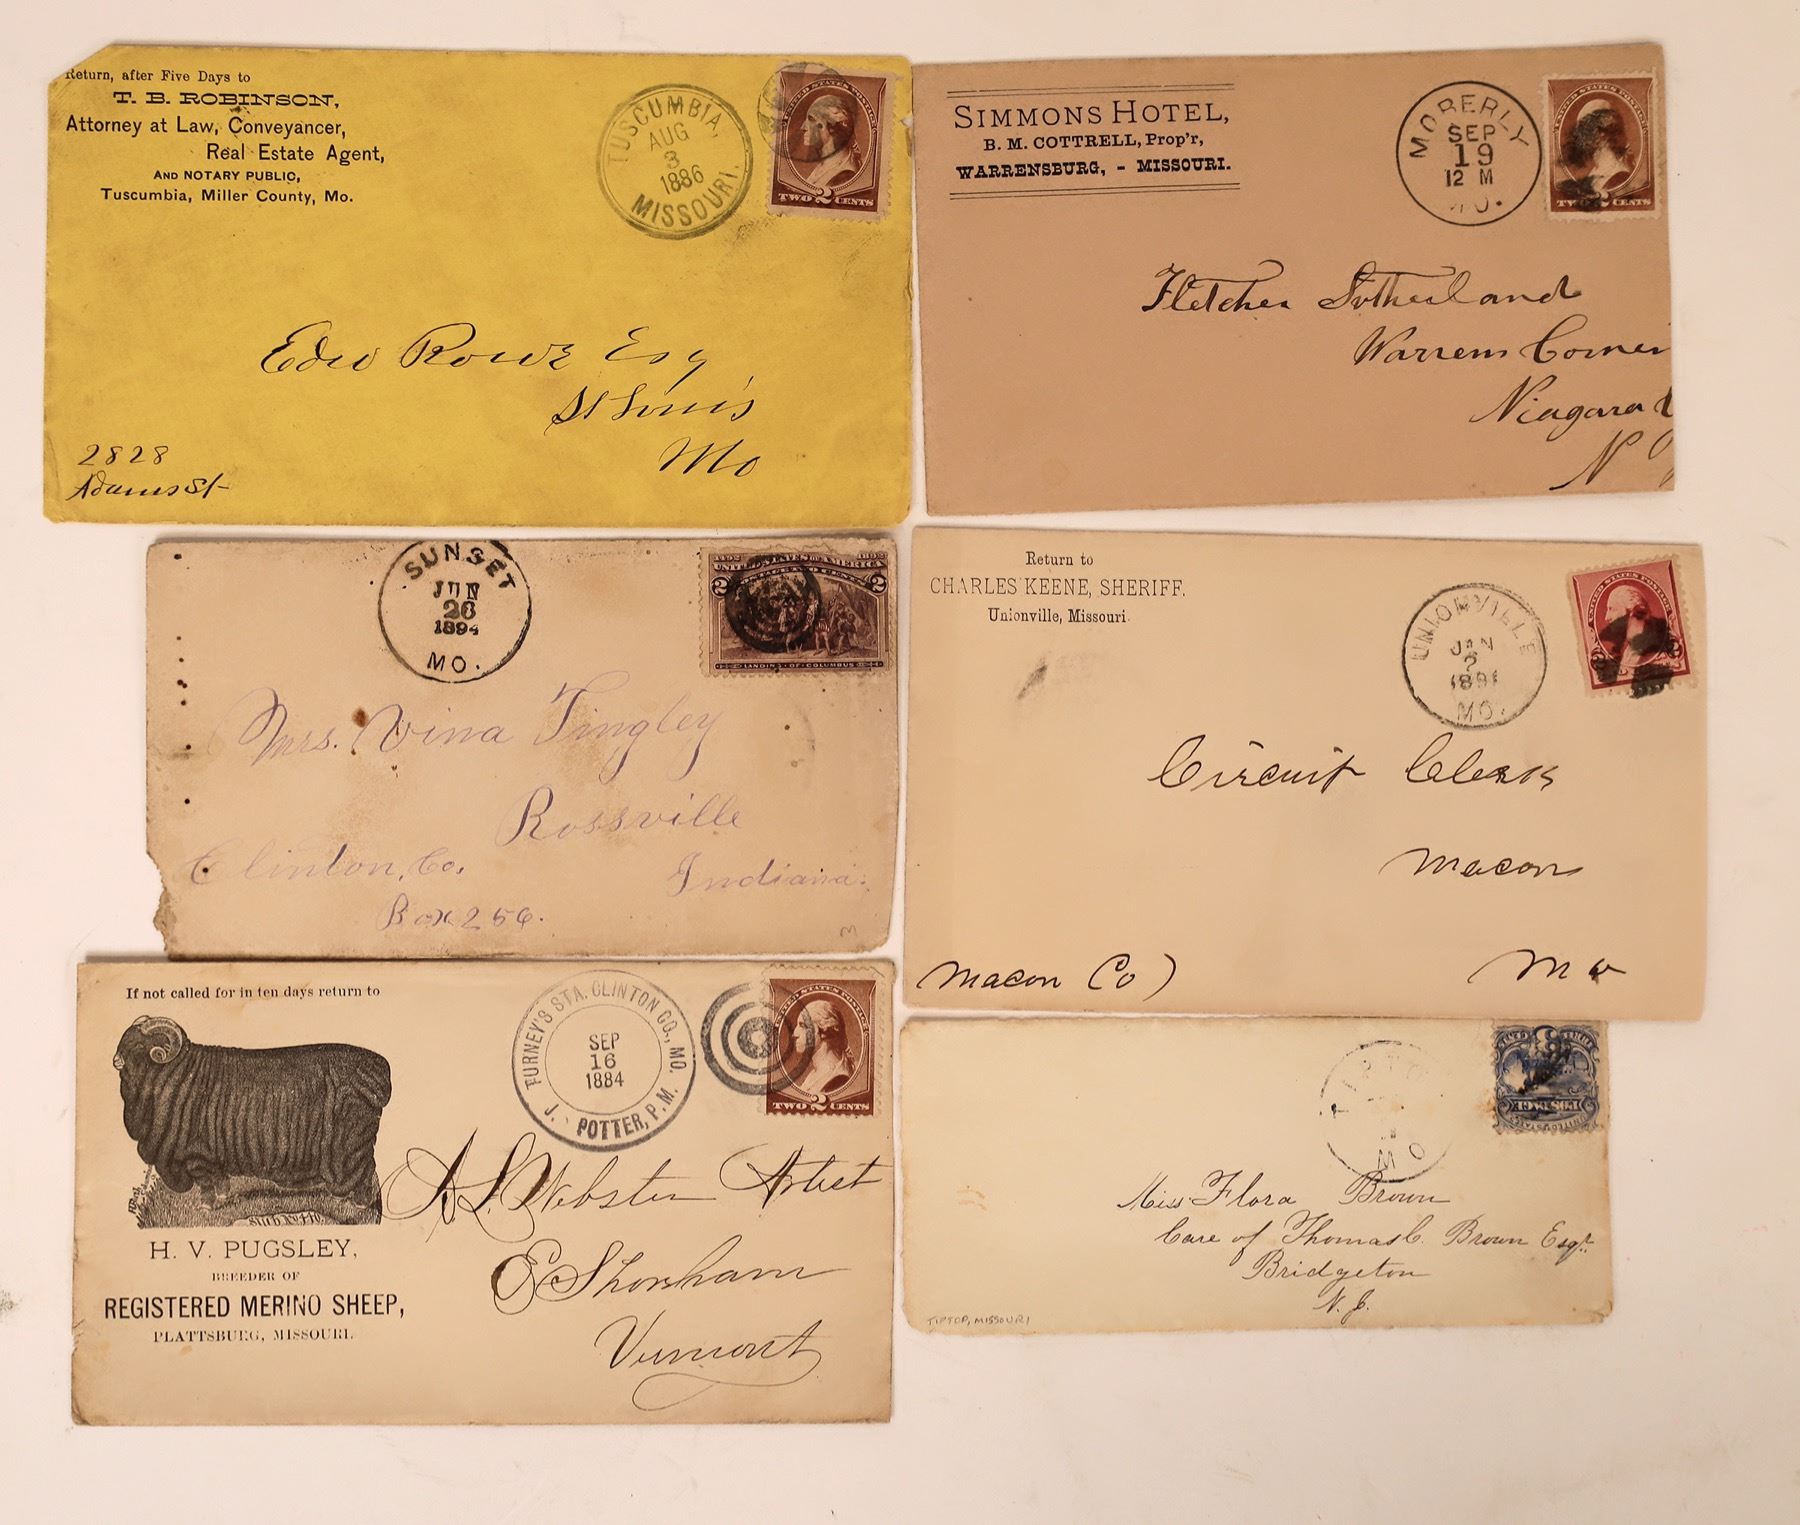 Return, after Five Days to
T. B. ROBINSON,
Attorney at Law, Conveyancer,
Real Estate Agent,
AND NOTARY PUBLIC,
Tuscumbia, Miller County, Mo.
TUSCUMBIA,
AUG
3
1886
MISSOURI.
UNITED STATES POSTAGE
TWO 2 CENTS
Edw Rowe Esq
St Louis
Mo
2828
Adams St
SIMMONS HOTEL,
B. M. COTTRELL, Prop'r,
WARRENSBURG, - MISSOURI.
MOBERLY
SEP
19
12 M
MO.
CENTS
Fletcher Sutherland
Warrens Corner
Niagara
N
SUNSET
JUN
26
1894
MO.
1492 UNITED STATES OF AMERICA 1892
POSTAGE TWO CENTS
2 2
LANDING OF COLUMBUS
Mrs. Vina Tingley
Rossville
Clinton, Co. Indiana.
Box 256.
M
Return to
CHARLES KEENE, SHERIFF.
Unionville, Missouri.
UNIONVILLE
JAN
1891
MO.
UNITED STATES POSTAGE
2
Circuit Clerk
Macon
Macon Co) Mo
If not called for in ten days return to
Stub No. 440.
H. V. PUGSLEY,
BREEDER OF
REGISTERED MERINO SHEEP,
PLATTSBURG, MISSOURI.
TURNEY'S STA. CLINTON CO., MO.
SEP
16
1884
J. POTTER, P.M.
UNITED STATES POSTAGE
TWO 2 CENTS
A L Webster Artist
E Shoreham
Vermont
MO
Miss Flora Brown
Care of Thomas C. Brown Esqr.
Bridgeton
N. J.
TIPTOP, MISSOURI